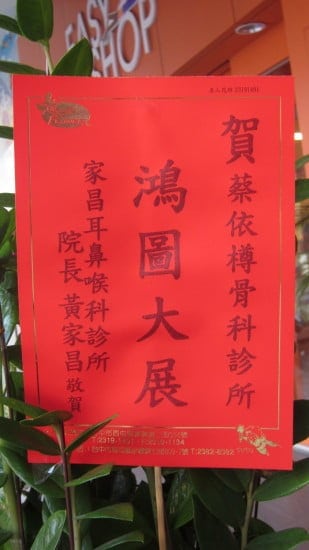 EASY
SHOP
賀
蔡依樽骨科診所
鴻圖大展
家昌耳鼻喉科診所
院長 黃家昌 敬賀